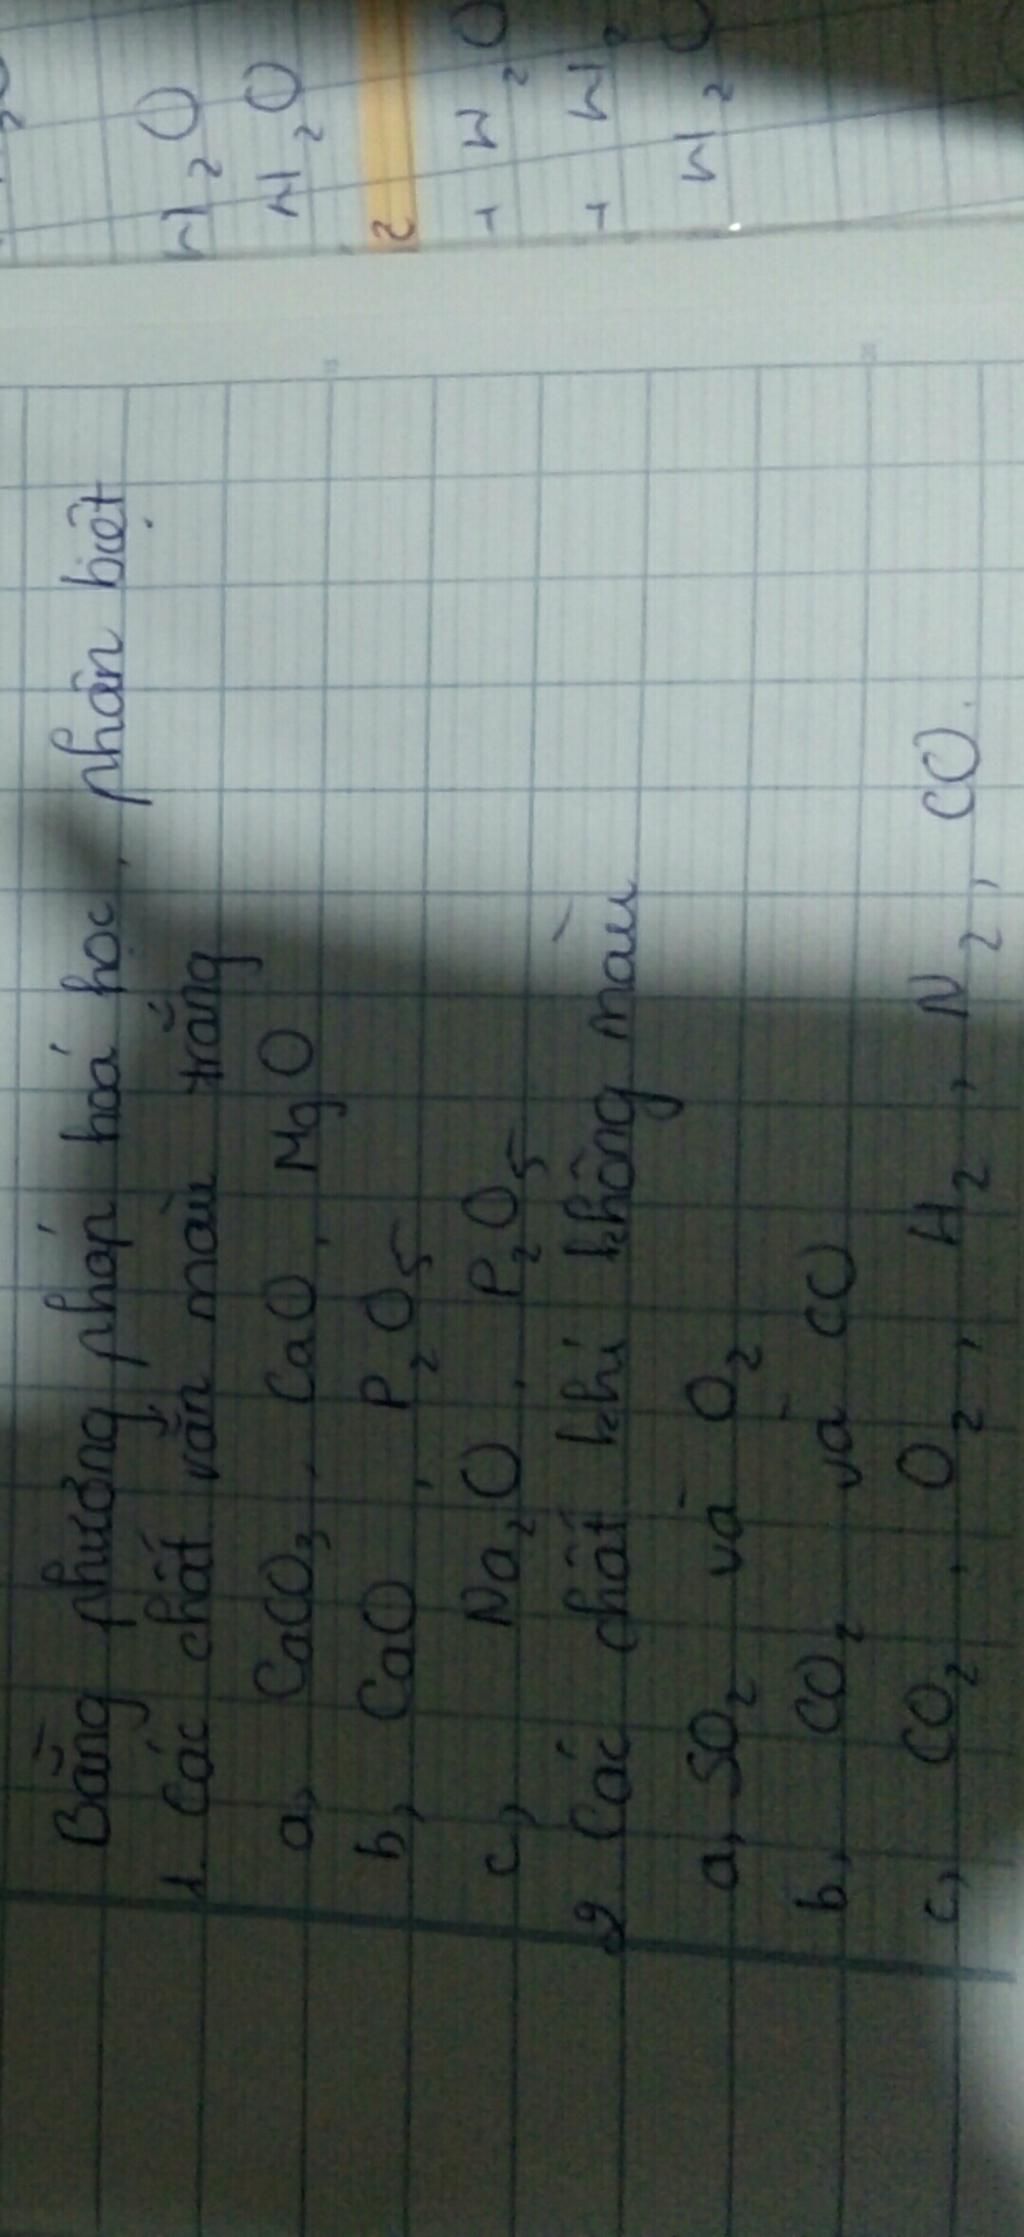 Bằng phương pháp hoá học, phân biệt
1. Các chất rắn màu trắng
a, CaCO3, CaO, MgO
b, CaO, P2O5
c, Na2O, P2O5
2 Các chất khí không màu
a, SO2 và O2
b, CO2 và CO
c, CO2, O2, H2, N2, CO.